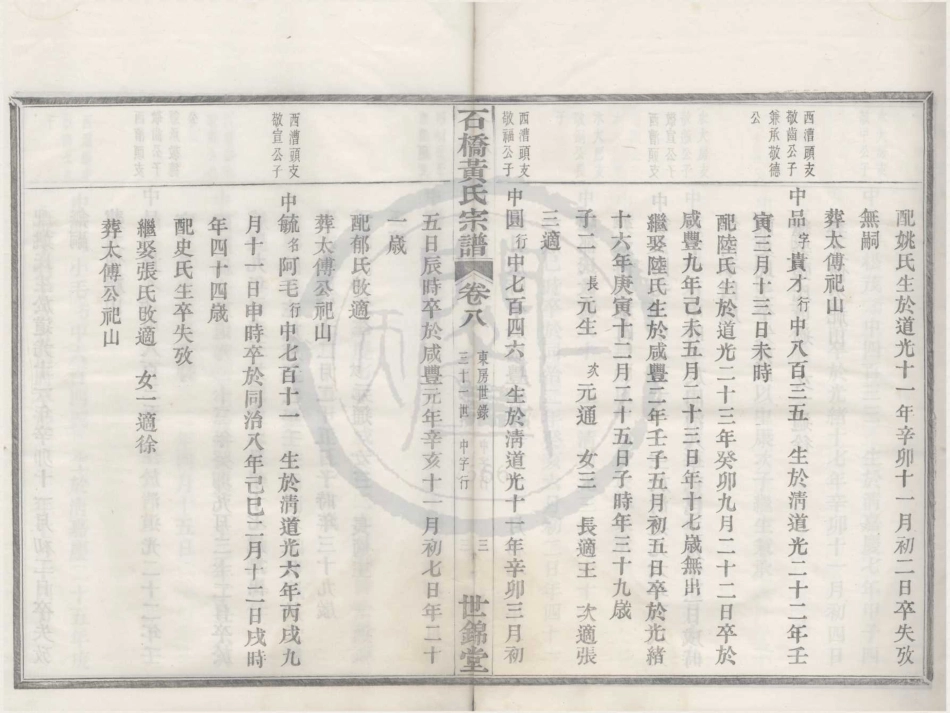 配姚氏生於道光十一年辛卯十一月初二日卒失攷
無嗣
葬太傅公祀山
西漕頭支
敬齒公子
兼承敬德
公
中品字貴才行中八百三五　生於淸道光二十二年壬
寅三月十三日未時
配陸氏生於道光二十三年癸卯九月二十二日卒於
咸豐九年己未五月二十三日年十七歲無出
繼娶陸氏生於咸豐二年壬子五月初五日卒於光緒
十六年庚寅十二月二十五日子時年三十九歲
子二　長元生　次元通　女三　長適王　次適張
三適
西漕頭支
敬福公子
中圓行中七百四六　生於淸道光十一年辛卯三月初
石橋黃氏宗譜
卷八
東房世錄
三十一世　中字行
三
世錦堂
五日辰時卒於咸豐元年辛亥十一月初七日年二十
一歲
配郁氏攺適
葬太傅公祀山
西漕頭支
敬宣公子
中毓名阿毛行中七百十一　生於淸道光六年丙戌九
月十一日申時卒於同治八年己巳二月十二日戌時
年四十四歲
配史氏生卒失攷
繼娶張氏攺適　女一適徐
葬太傅公祀山